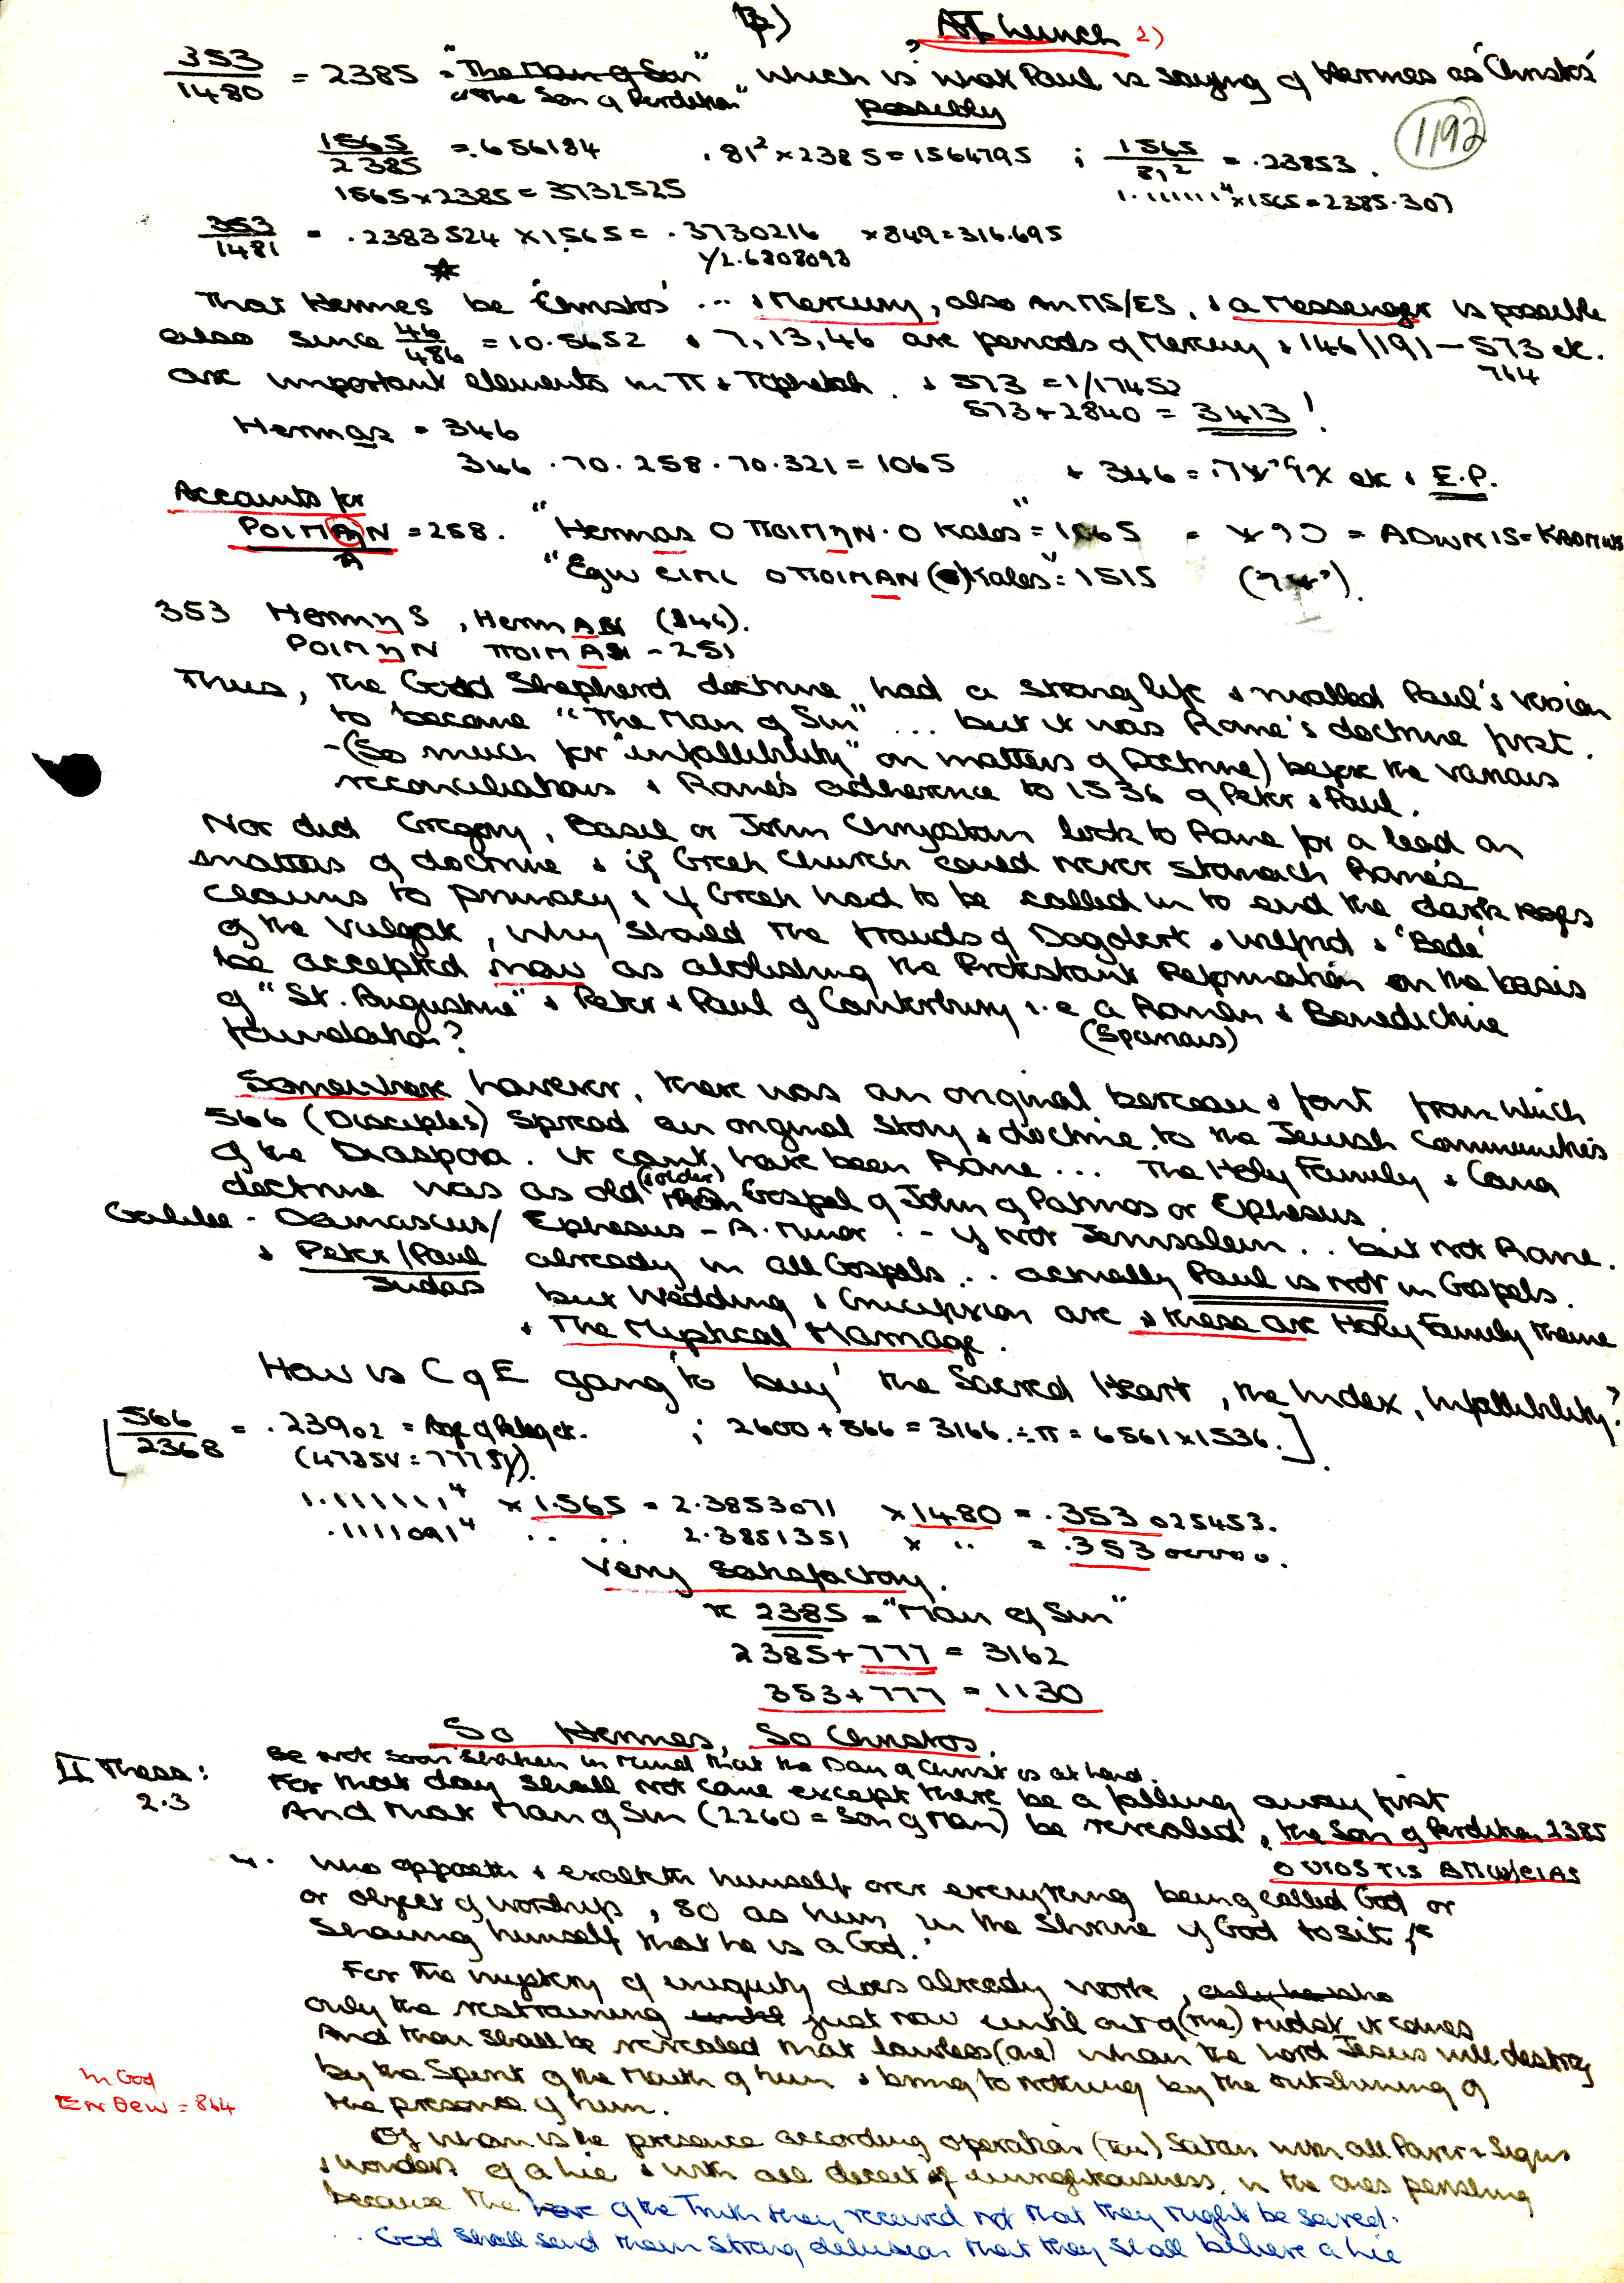 B)
At Lunch 2)
353/1480 = 2385 = "The Man of Son" , which is what Paul is saying of Hermes as 'Christos'
"The Son of Perdition" possibly
1192
1565/2385 = .656184 , 81² × 2385 = 1564795 ; 1565/81² = .23853 .
1565 × 2385 = 3732525 1.111111⁴ × 1565 = 2385.307
353/1481 = .2383524 × 1565 = .3730216 × 849 = 316.695
1/2.6808093
That Hermes be 'Christos' ... & Mercury, also an MS/ES, & a Messenger is possible
also since 46/486 = 10.5652 & 7, 13, 46 are periods of Mercury & 146/191 – 573 etc.
764
are important elements in π & Tophetah . & 573 = 1/17452
573 + 2840 = 3413 !
Hermas = 346
346 . 70 . 258 . 70 . 321 = 1065 & 346 = etc & E.P.
Accounts for
POIMAN = 258. "Hermas O ΠΟΙΜηN . O Kalos" = 1065 = = ADWNIS = KADMUS
A
"Egw eimi O ΠΟΙΜΑΝ (O) Kalos" = 1515
353 HermηS , HermAS (346).
POIMηN ΠΟΙΜΑΝ – 251
Thus, the Good Shepherd doctrine had a strong life & rivalled Paul's version
to become "The Man of Sin" ... but it was Rome's doctrine first.
– (So much for "infallibility" on matters of Doctrine) before the various
reconciliations & Rome's adherence to 1536 of Peter & Paul.
Nor did Gregory, Basil or John Chrysostom look to Rome for a lead on
matters of doctrine & if Greek Church could never stomach Rome's
claims to primacy & if Greek had to be called in to end the dark ages
of the Vulgate, why should the frauds of Dogobert & Wilfrid & 'Bede'
be accepted now as abolishing the Protestant Reformation on the basis
of "St. Augustine" & Peter & Paul of Canterbury i.e a Roman & Benedictine
foundation? (Spurious)
Somewhere however, there was an original berceau & font from which
566 (Disciples) spread an original story & doctrine to the Jewish Communities
of the Diaspora. It can't have been Rome ... The Holy Family & Cana
doctrine was as old (& older) than Gospel of John of Patmos or Ephesus.
Galilee – Damascus/ Ephesus – A. Minor .– if not Jerusalem .. but not Rome.
& Peter/Paul already in all Gospels .. actually Paul is not in Gospels.
Judas but Wedding & Crucifixion are & these are Holy Family theme
& The Mystical Marriage.
How is C of E going 'to buy' the Sacred Heart, the Index, Infallibility?
[566/2368 = .23902 = Age of Peleg etc. ; 2600 + 566 = 3166. ÷ π = 6561 × 1536.]
(4735V = 777 SY).
1.111111⁴ × 1.565 = 2.3853071 × 1480 = .353025453.
.1111091⁴ .. .. 2.3851351 × .. = .353000000.
Very Satisfactory.
& 2385 = "Man of Sin"
2385 + 777 = 3162
353 + 777 = 1130
So Hermes, So Christos.
II Thess: Be not soon shaken in mind that the Day of Christ is at hand.
2.3 For that day shall not come except there be a falling away first
And that Man of Sin (2260 = Son of Man) be revealed, the Son of Perdition 2385
O UIOS TIS APWLEIAS
4. who opposeth & exalteth himself over everything being called God or
or object of worship, so as him in the Shrine of God to sit
Shewing himself that he is a God.
For the mystery of iniquity does already work, only he who
only the restraining until just now until out of (the) midst it comes
And then shall be revealed that lawless (one) whom the Lord Jesus will destroy
by the Spirit of the Mouth of him & bring to nothing by the outshining of
the presence of him.
In God
En Θew = 864
Of whom is the presence according operation (to) Satan with all Power & Signs
& wonders of a lie & with all deceit of unrighteousness in the ones perishing
because the love of the Truth they received not that they might be saved.
.. God shall send them strong delusion that they shall believe a lie